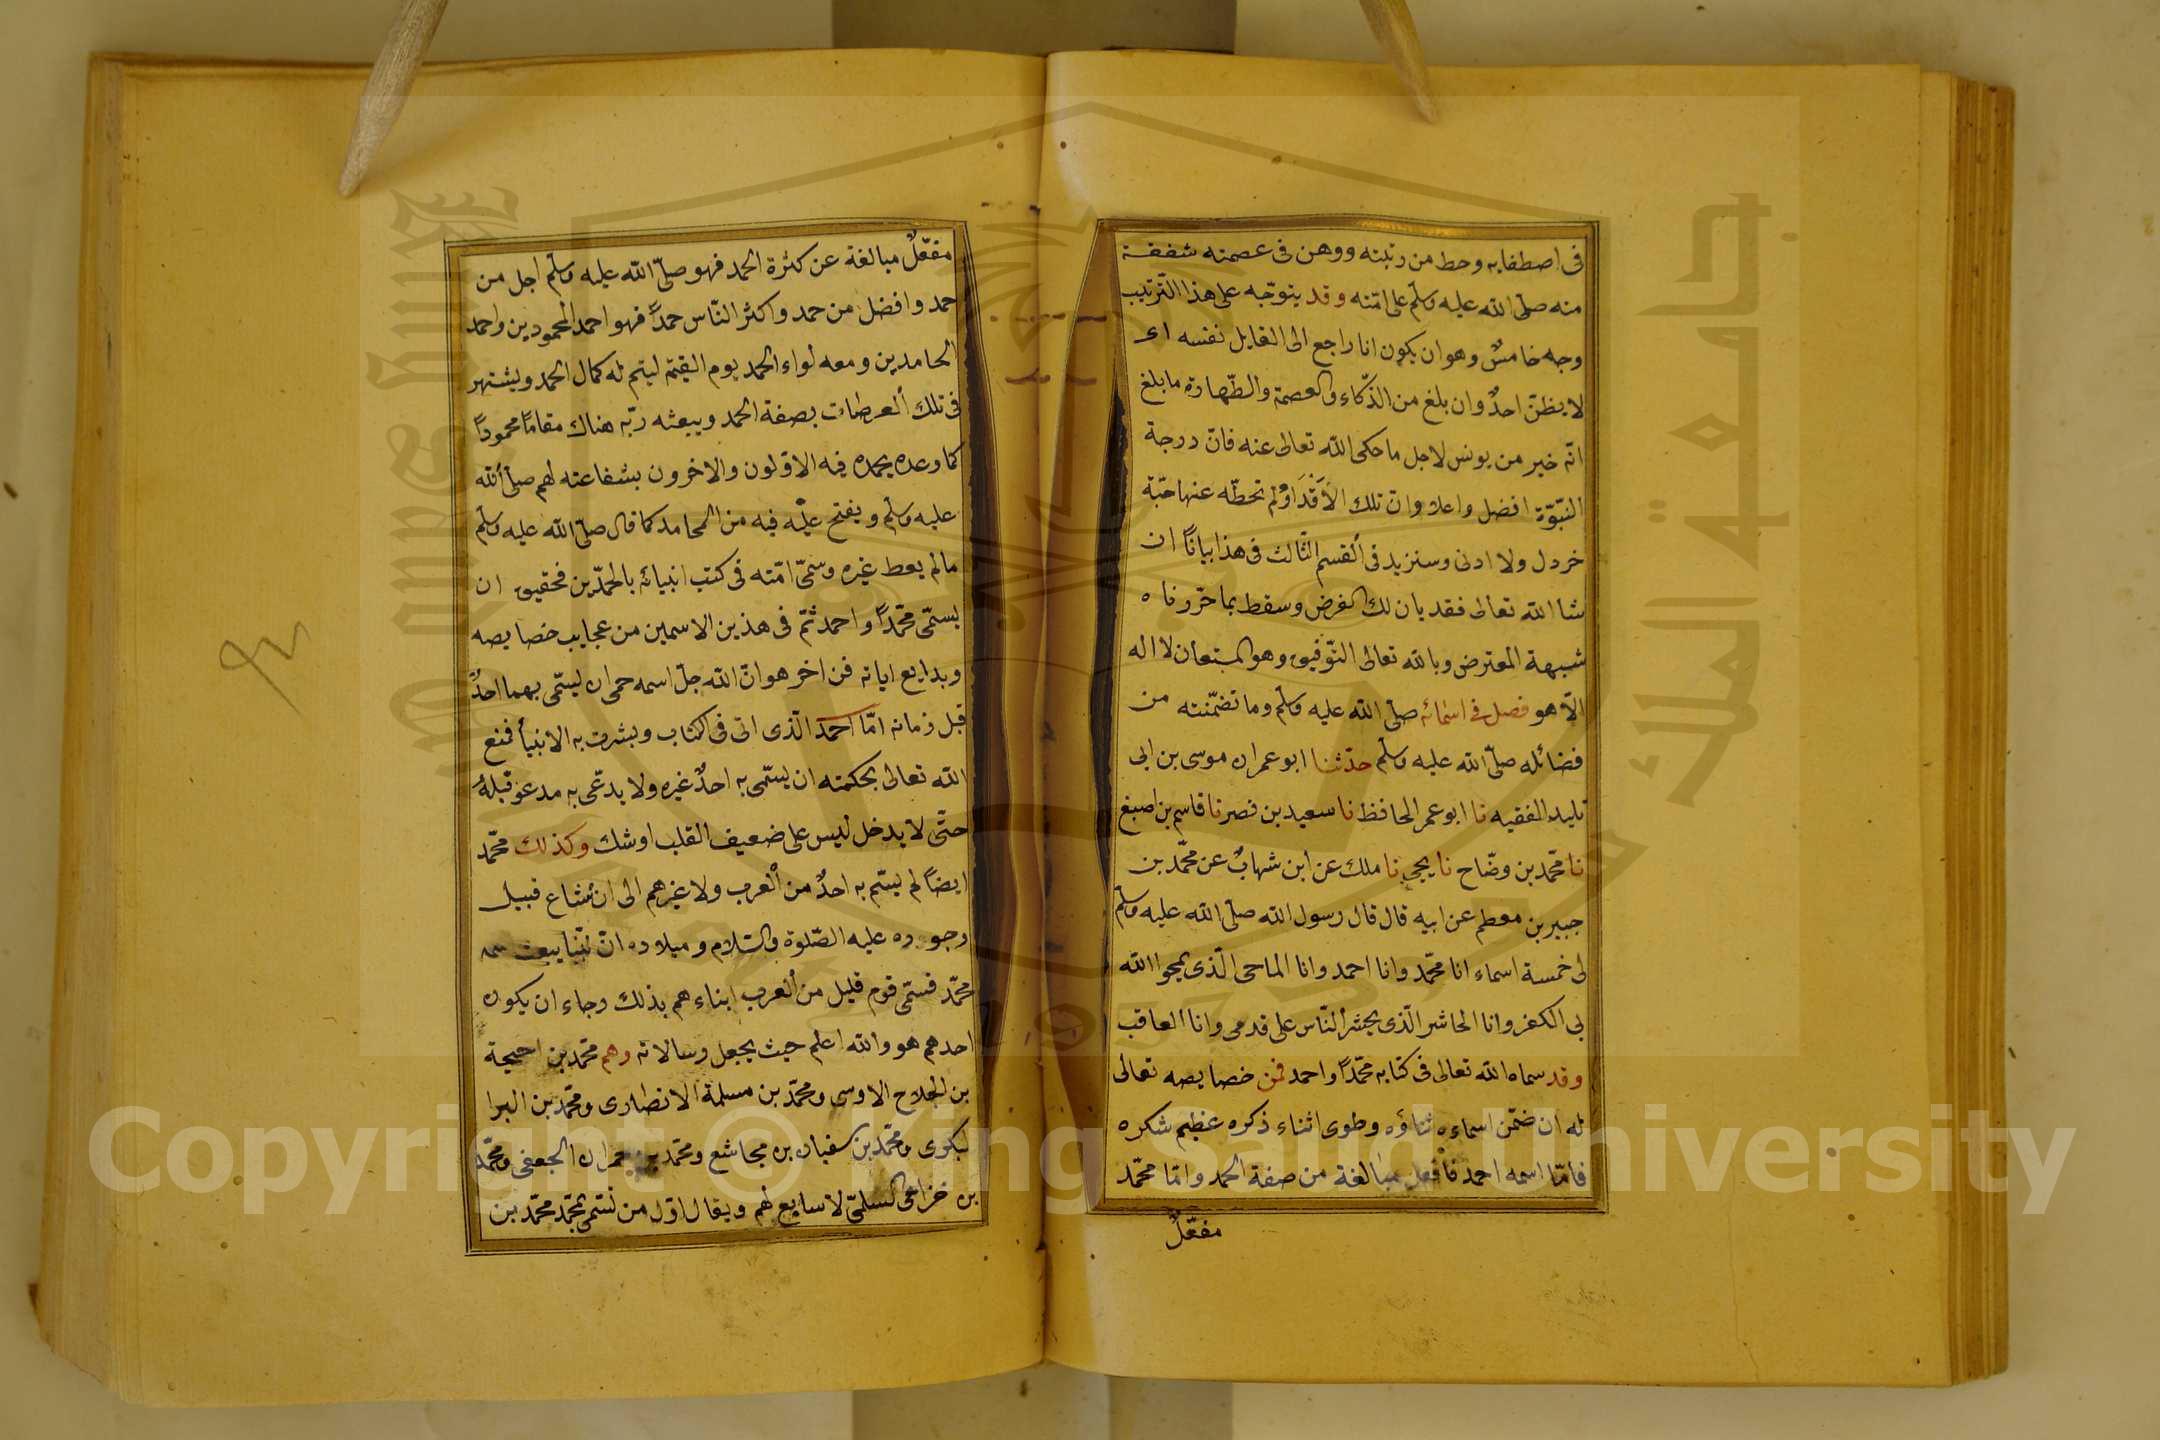 فى اصطفايه وحط من رتبته ووهن فى عصمته شفقة
منه صلّى الله عليه وسلّم على امّته وقد يتوجّه على هذا التّرتيب
وجه خامسٌ وهو ان يكون انا راجع الى القايل نفسه اى
لا يظنّ احدٌ وان بلغ من الذّكاء والعصمة والطّهارة ما بلغ
انّه خير من يونس لاجل ما حكى الله تعالى عنه فانّ درجة
النّبوّة افضل واعلا وانّ تلك الأَقْدَار لم تحطّه عنها حبّة
خردل ولا ادنى وسنزيد فى القسم الثّالث فى هذا بيانًا ان
شا الله تعالى فقد بان لك الغرض وسقط بما حرّرناه
شبهة المعترض وبالله تعالى التّوفيق وهو المستعان لا اله
الاّ هو فصل فى اسمائه صلّى الله عليه وسلّم وما تضمّنته من
فضائله صلّى الله عليه وسلّم حدّثنا ابو عمران موسى بن ابى
تليد الفقيه نا ابو عمر الحافظ نا سعيد بن نصر نا قاسم بن اصبغ
نا محمّد بن وضّاح نا يحيى نا ملك عن ابن شهابٌ عن محمّد بن
جبير بن مطعم عن ابيه قال قال رسول الله صلّى الله عليه وسلّم
لى خمسة اسماء انا محمّد وانا احمد وانا الماحى الّذى يمحوا الله
بى الكفر وانا الحاشر الّذى يحشر النّاس على قدمى وانا العاقب
وقد سماه الله تعالى فى كتابه محمّدًا واحمد فمن خصايصه تعالى
له ان ضمّن اسماءه ثناؤه وطوى اثناء ذكره عظيم شكره
فامّا اسمه احمد فافعل مبالغة من صفة الحمد وامّا محمّد
مفعّلٌ
مفعّلٌ مبالغة عن كثرة الحمد فهو صلّى الله عليه وسلّم اجل من
حمد وافضل من حمد واكثر النّاس حمدًا فهو احمد المحمودين واحمد
الحامدين ومعه لواء الحمد يوم القيمة ليتم له كمال الحمد ويشتهر
فى تلك العرصات بصفة الحمد ويبعثه ربّه هناك مقامًا محمودًا
كما وعده يحمده فيه الاوّلون والاخرون بشفاعته لهم صلّى الله
عليه وسلّم ويفتح عليه فيه من المحامد كما قال صلّى الله عليه وسلّم
ما لم يعط غيره وسمّى امّته فى كتب انبيائه بالحمّادين فحقيق ان
يسمّى محمّدًا واحمد ثمّ فى هذين الاسمين من عجايب خصايصه
وبدايع اياته فن اخر هو انّ الله جلّ اسمه حمى ان يسمّى بهما احدٌ
قبل زمانه امّا احمد الّذى اتى فى الكتاب وبشرت به الانبيأ فمنع
الله تعالى بحكمته ان يسمّى به احدٌ غيره ولا يدعّى به مدعو قبله
حتّى لا يدخل لبس على ضعيف القلب او شك وكذلك محمّد
ايضًا لم يسّم به احدٌ من العرب ولا غيرهم الى ان شاع قبيل
وجوده عليه الصّلوة والسّلام وميلاده انّ نبّيا يبعث اسمه
محمّد فسمّى قوم قليل من العرب ابناءهم بذلك رجاء ان يكون
احدهم هو والله اعلم حيث يجعل رسالاته وهم محمّد بن احيحة
بن الجلاح الاوسى ومحمّد بن مسلمة الانصارى ومحمّد بن البرا
لبكرى ومحمّد بن سفيان بن مجاشع ومحمّد بن حمران الجعفى ومحمّد
بن خزاعى السلمّى لا سابع لهم ويقال اوّل من تسّمى بمحمّد محمّد بن
جامعة الملك سعود
King Saud University
1957
Copyright © King Saud University